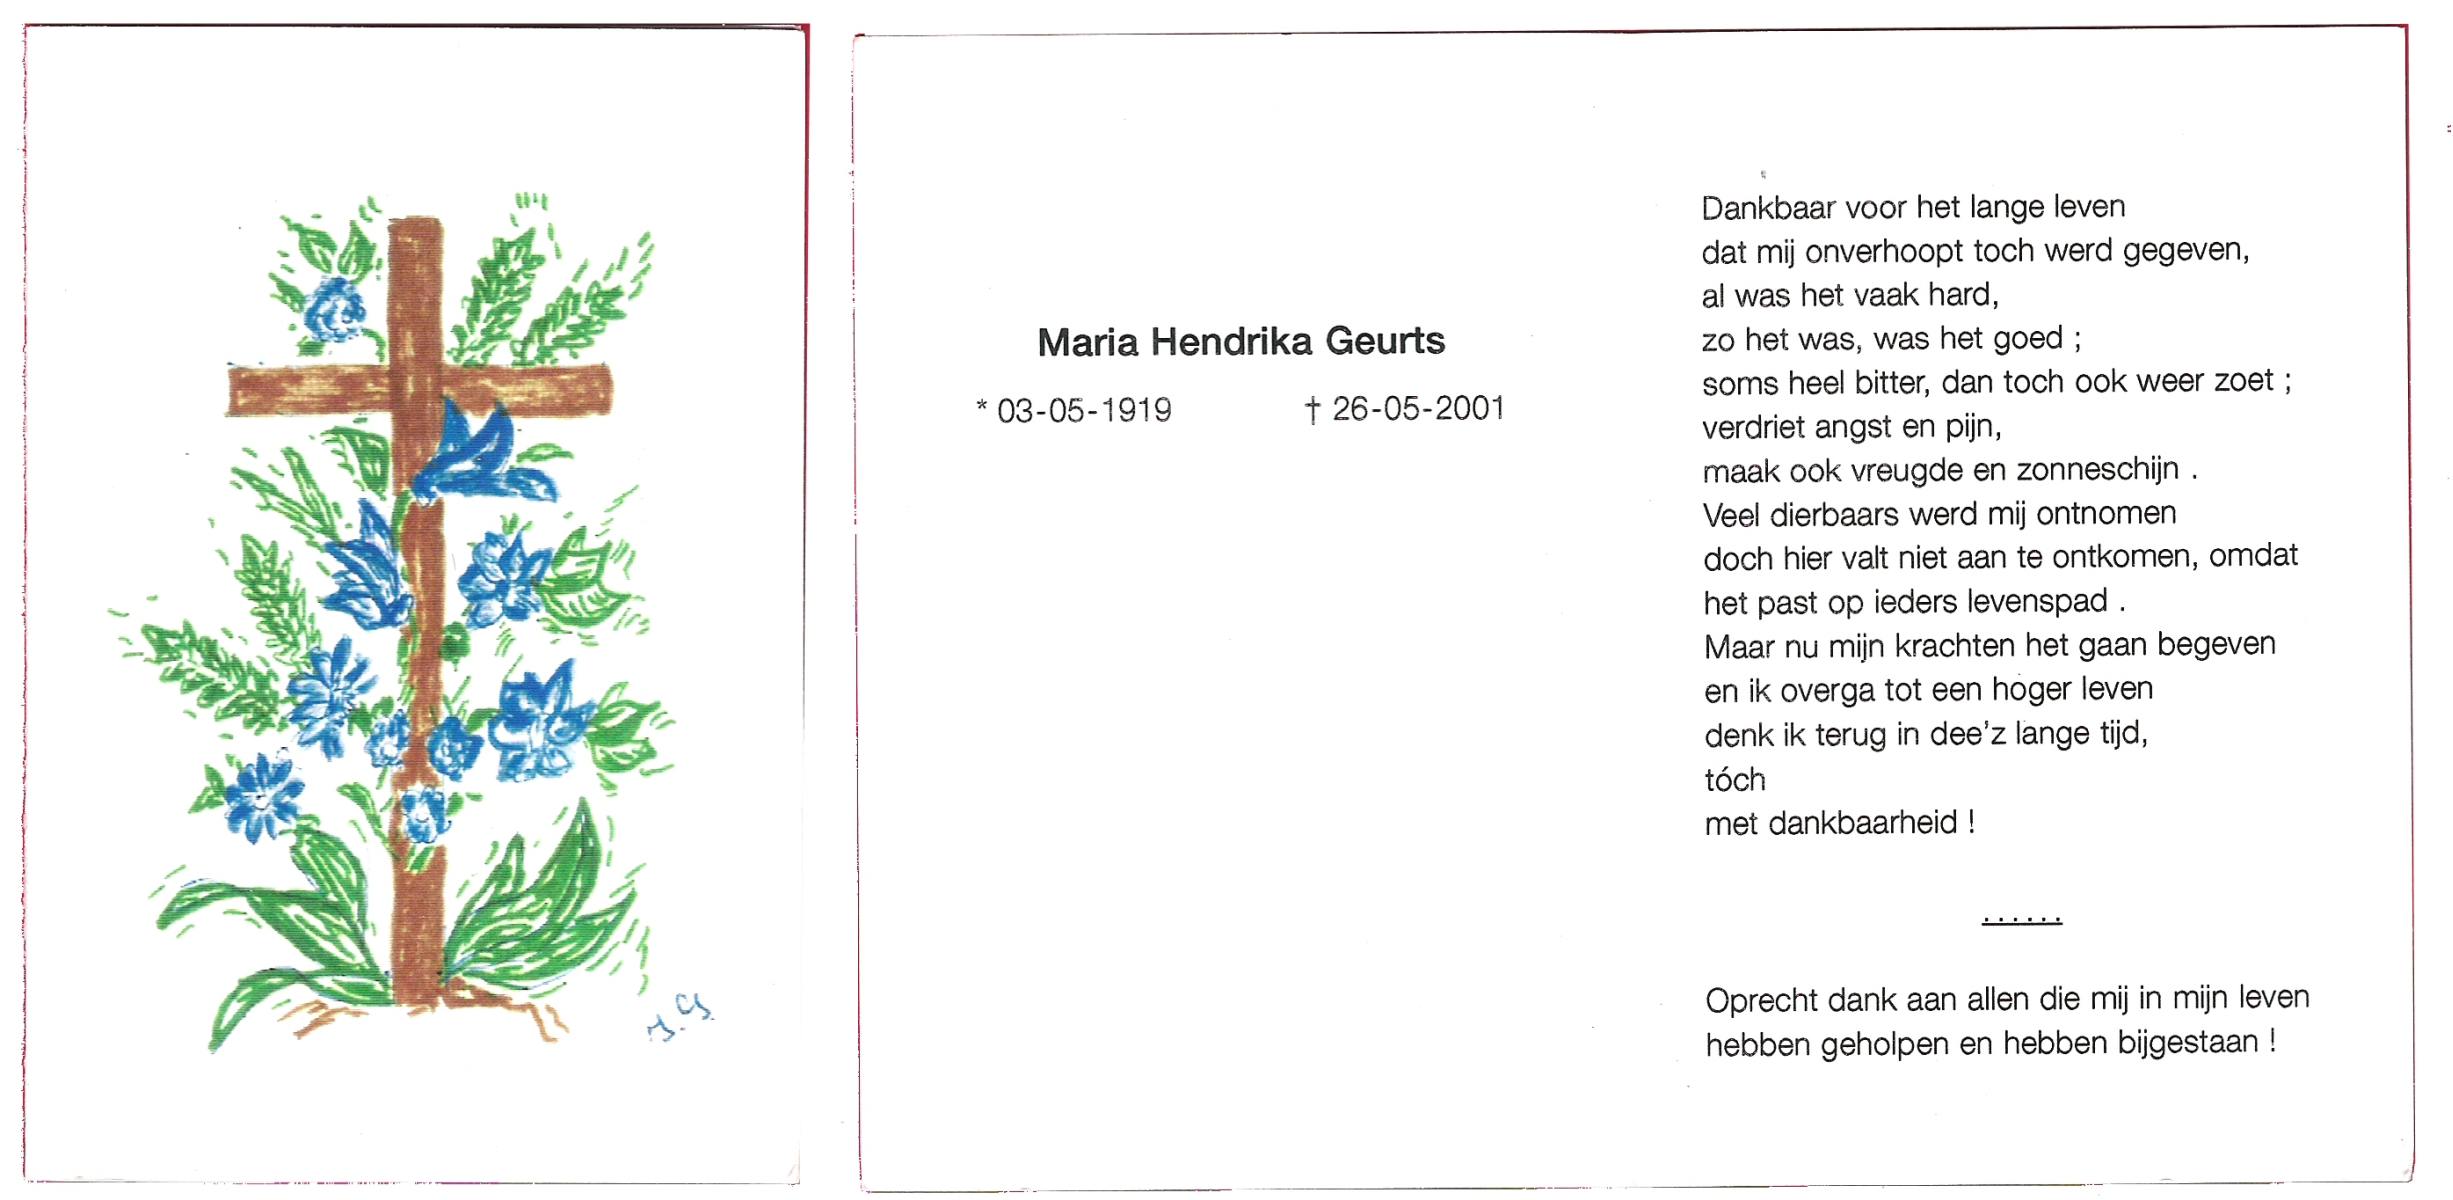 Maria Hendrika Geurts
* 03-05-1919 † 26-05-2001
Dankbaar voor het lange leven
dat mij onverhoopt toch werd gegeven,
al was het vaak hard,
zo het was, was het goed ;
soms heel bitter, dan toch ook weer zoet ;
verdriet angst en pijn,
maak ook vreugde en zonneschijn .
Veel dierbaars werd mij ontnomen
doch hier valt niet aan te ontkomen, omdat
het past op ieders levenspad .
Maar nu mijn krachten het gaan begeven
en ik overga tot een hoger leven
denk ik terug in dee'z lange tijd,
tóch
met dankbaarheid !
......
Oprecht dank aan allen die mij in mijn leven
hebben geholpen en hebben bijgestaan !